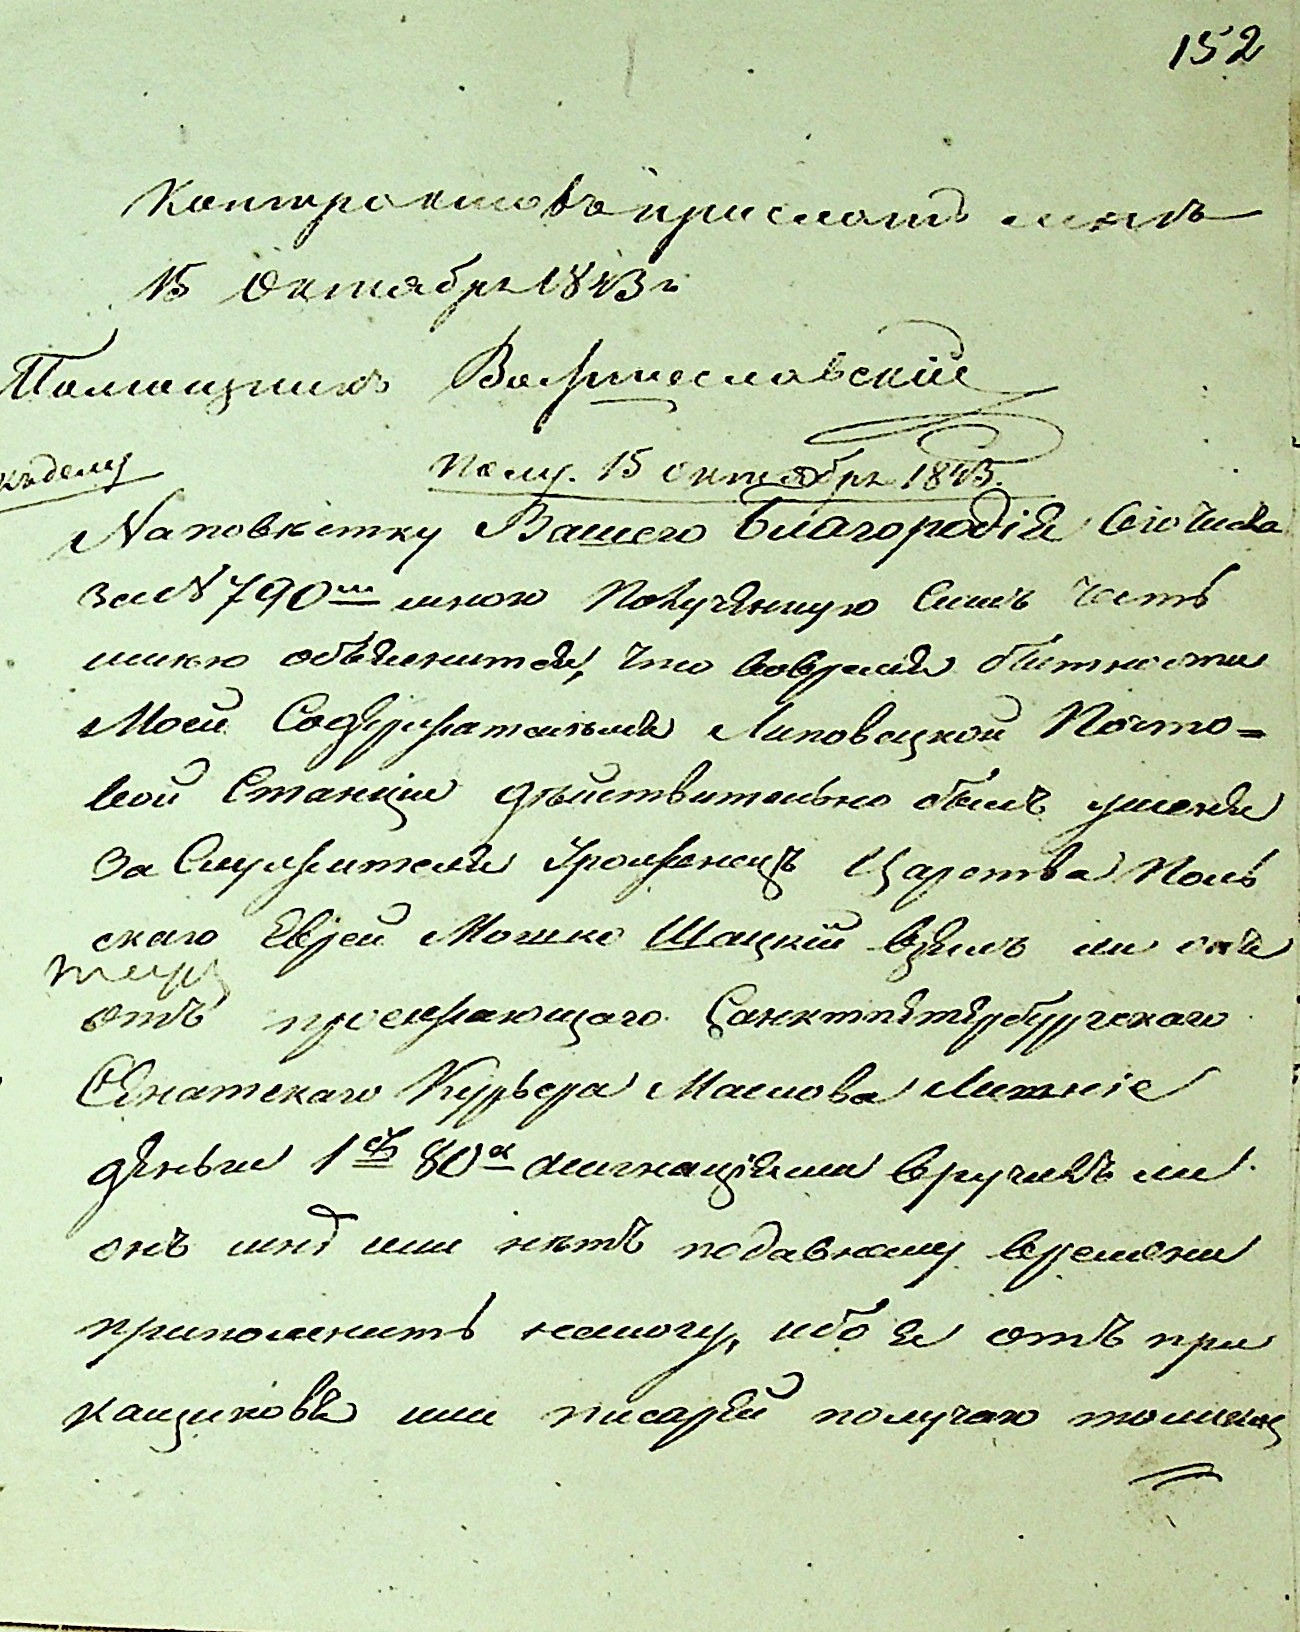 152
Контрактовъ прислать мнѣ
15 Октября 1843 г
Помощникъ
къ делу
Полу. 15 октября 1843.
На повѣстку Вашего Благородія Сего числа
за № 790 мною Полученную Симъ честь
имѣю объяснится, что вовремя бытности
Моей Содержателемъ Липовецкой Почто=
вой Станціи дѣйствительно былъ уменя
За Служителя Уроженецъ Царства Поль
скаго Еврей Мошко Шацкій взялъ ли онъ
отъ проезжающаго Санктпетербургскаго
Сенатскаго Курьера Маслова Лишніе
деньги 1 80 асигнаціями вручилъ ли
онъ мнѣ или нѣтъ подавному времени
припомнить немогу, ибо я отъ при
кащиковъ или писарей получаю